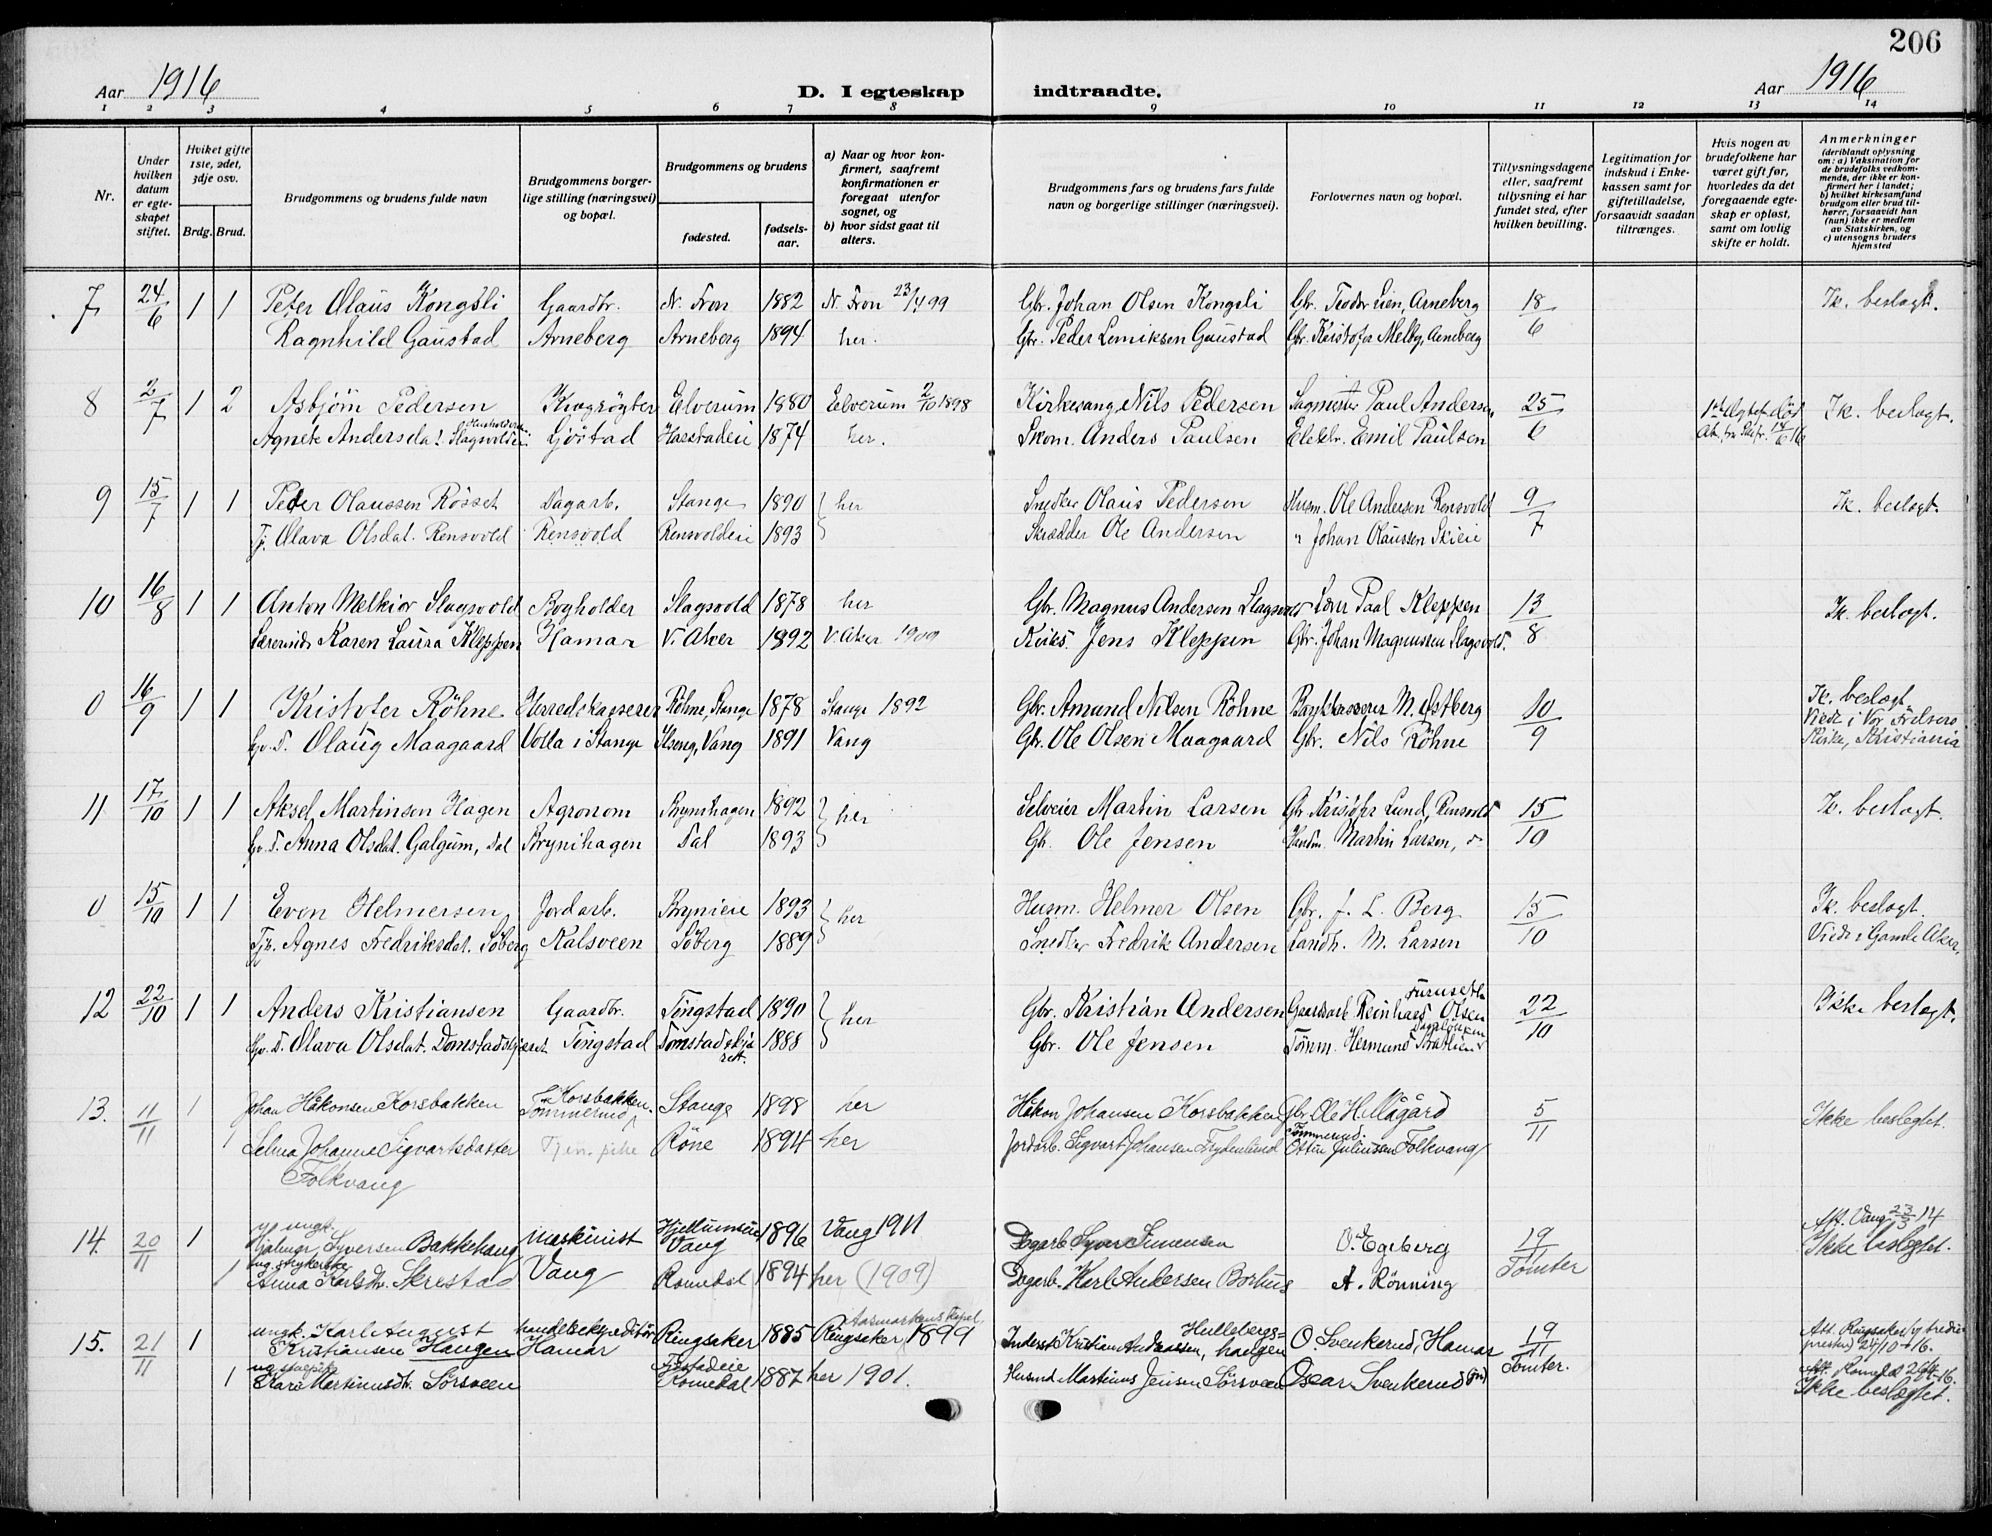 206
Aar 1916 D. I egteskap indtraadte. Aar 1916
1 2 3 4 5 6 7 8 9 10 11 12 13 14
Nr.
Under hvilken datum er egteskapet stiftet.
Hviket gifte 1ste, 2det, 3dje osv.
Brdg. Brud.
Brudgommens og brudens fulde navn
Brudgommens borgerlige stilling (næringsvei) og bopæl.
Brudgommens og brudens
fødested. fødselsaar.
a) Naar og hvor konfirmert, saafremt konfirmationen er foregaat utenfor sognet, og
b) hvor sidst gaat til alters.
Brudgommens fars og brudens fars fulde navn og borgerlige stillinger (næringsvei).
Forlovernes navn og bopæl.
Tillysningsdagene eller, saafremt tillysning ei har fundet sted, efter hvilken bevilling.
Legitimation for indskud i Enkekassen samt for giftetilladelse, forsaavidt saadan tiltrænges.
Hvis nogen av brudefolkene har været gift før, hvorledes da det foregaaende egteskap er opløst, samt om lovlig skifte er holdt.
Anmerkninger (deriblandt oplysning om: a) Vaksination for de brudefolks vedkommende, der ikke er konfirmert her i landet; b) hvilket kirkesamfund brudgom eller brud tilhører, forsaavidt han (hun) ikke er medlem av Statskirken, og c) utensogns bruders hjemsted
7 24/6 1 1 Peter Olaus Kongsli Gaardbr. N. Fron 1882 N. Fron 23/4 99 Gbr. Johan Olsen Kongsli Gbr. Teodor Lien, Arneberg 18/6 Ik. beslegt.
Ragnhild Gaustad Arneberg Arneberg 1894 her. Gbr. Peder Lemiksen Gaustad Gbr. Kristofer Melby, Arneberg
8 2/7 1 2 Asbjørn Pedersen Elverum 1880 Elverum 2/10 1898 Kirkesang. Nils Pedersen Sagmester Paul Andersen 25/6 Ik. beslegt.
Agnete Andersdat. Slagsvoldeie Gjøstad Hasstadeie 1874 her. Skom. Anders Paulsen Elektr. Emil Paulsen
9 15/7 1 1 Peder Olaussen Røsset Dagarb. Stange 1890 her Snedker Olaus Pedersen Husm. Ole Andersen Rensvold 9/7 Ik. beslegt.
Tj. Olava Olsdat. Rensvold Rensvold Rensvoldeie 1893 Skrædder Ole Andersen " Johan Olaussen Skieie
10 16/8 1 1 Anton Melkior Slagsvold Bogholder Slagsvold 1878 her Gbr. Magnus Andersen Slagsvold Lærer Paal Kleppen 13/8 Ik. beslegt.
Lærerinde Karen Laura Kleppen Hamar V. Aker 1892 V. Aker 1909 Kirks. Jens Kleppen Gbr. Johan Magnussen Slagsvold.
0 16/9 1 1 Kristofer Röhne Herredskasserer Röhne, Stange 1878 Stange 1892 Gbr. Amund Nilsen Röhne Bankkasserer M. Østberg 10/9 Ik. beslegt
Gv. D. Olaug Maagaard Votla i Stange Ilseng, Vang 1891 Vang Gbr. Ole Olsen Maagaard Gbr. Nils Röhne Viede i Vor Frelsers Kirke, Kristiania
11 17/10 1 1 Aksel Martinsen Hagen Agronom Brynihagen 1892 her Selveier Martin Larsen Gbr. Kristofer Lund, Rensvold 15/10 Ik. beslegt.
Gv. D. Anna Olsdat. Galgum, Dal Brynihagen Dal 1893 Gbr. Ole Jensen Martin Larsen,
0 15/10 1 1 Even Helmersen Jordarb. Brynieie 1893 her Husm. Helmer Olsen Gbr. J. L. Berg 15/10 Ik. beslegt
Tjp. Agnes Fredriksdat. Söberg Kalsveen Söberg 1889 Snedker Fredrik Andersen Landh. M. Larsen Viede i Gamle Aker.
12 22/10 1 1 Anders Kristiansen Gaardbr. Tingstad 1890 her Gbr. Kristian Andersen Gaardarb. Reinhard Olsen Furuseth 22/10 Ikke beslegt.
Gv. D. Olava Olsdat. Domstadskjæret Tingstad Tomstadskjæret. 1888 Gbr. Ole Jensen Tømm. Hermund
13. 11/11 1 Johan Håkonsen Korsbakken Korsbakken Tømmerhud. Stange 1898 her Håkon Johansen Korsbakken Gbr. Ole Hellågård 5/11 Ikke beslegtet.
1 Selma Johanne Sigvartsdatter Folkvang Tjen. pike Röne 1894 her Jordarb. Sigvart Johansen Frydenlund Ottin Juliussen Folkvang
14. 20/11 1 ungk. Hjalmar Syversen Bakkehaug maskinist Hjellumseie Vang 1896 Vang 1911 Dagarb. Syver Simensen O. Egeberg 19/11 Tomter Att. Vang 23/3 14 Ikke beslegtet.
1 Anna Karlsdtr. Skrestad Vang Romedal 1894 her (1909) Dagarb. Karl Andersen Borhus A. Rönning
15. 21/11 1 ungk. Karl August Kristiansen Haugen handelsekspeditör Hamar Ringsaker 1885 Ringsaker 1899 Aasmarkens Kapel Inderst Kristian Andreassen, Hullebergshaugen O. Svenkerud, Hamar 19/11 Tomter. Att. Ringsaker 24/10-16.
1 Kari Martinusdtr. Sørsveen Romedal 1887 her 1901. Husmd Martinus Jensen Sörsveen Oscar Svenkerud Att. Romedal Ikke beslegtet.